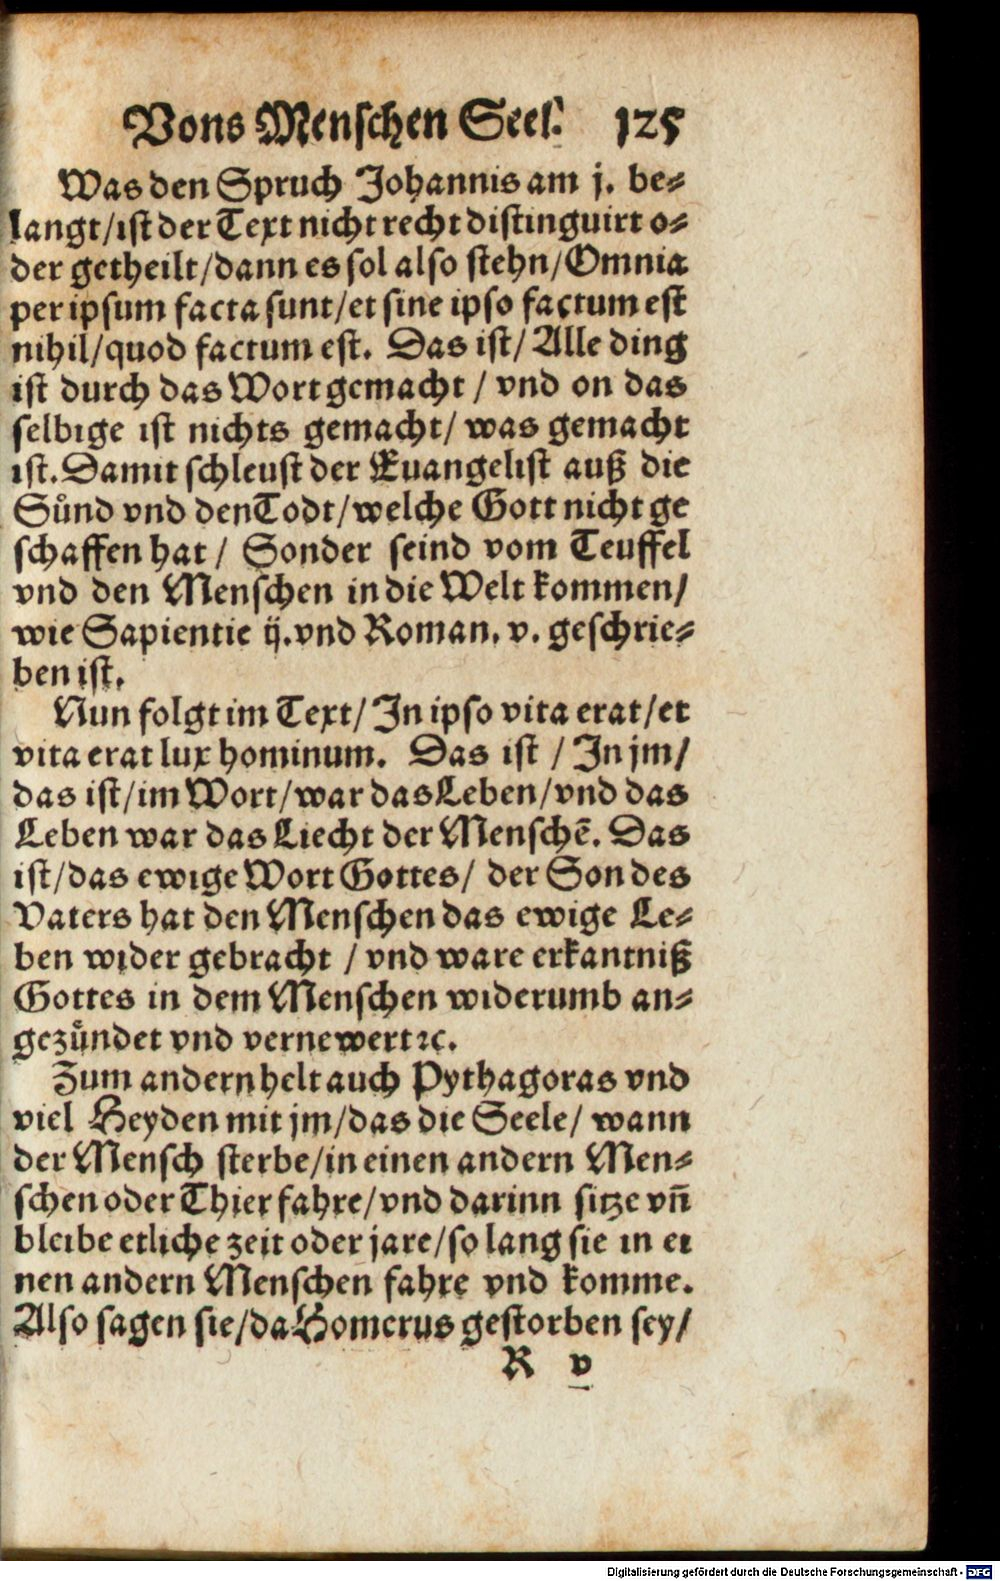 Vons Menschen Seel. 125
Was den Spruch Johannis am j. be⸗
langt/ist der Text nicht recht distinguirt o⸗
der getheilt/dann es sol also stehn/Omnia
per ipsum facta sunt/et sine ipso factum est
nihil/quod factum est. Das ist/ Alle ding
ist durch das Wort gemacht / vnd on das
selbige ist nichts gemacht/ was gemacht
ist. Damit schleust der Euangelist auß die
Sůnd vnd den Todt/welche Gott nicht ge
schaffen hat / Sonder seind vom Teuffel
vnd den Menschen in die Welt kommen/
wie Sapientie ij. vnd Roman. v. geschrie⸗
ben ist.
Nun folgt im Text/ In ipso vita erat/et
vita erat lux hominum. Das ist / In jm/
das ist/im Wort/war das Leben/vnd das
Leben war das Liecht der Menschē. Das
ist/das ewige Wort Gottes/ der Son des
Vaters hat den Menschen das ewige Le⸗
ben wider gebracht / vnd ware erkantniß
Gottes in dem Menschen widerumb an⸗
gezůndet vnd vernewert ꝛc.
Zum andern helt auch Pythagoras vnd
viel Heyden mit jm/das die Seele/ wann
der Mensch sterbe/in einen andern Men⸗
schen oder Thier fahre/vnd darinn sitze vn̄
bleibe etliche zeit oder jare/so lang sie in ei
nen andern Menschen fahre vnd komme.
Also sagen sie/da Homerus gestorben sey/
R v
Digitalisierung gefördert durch die Deutsche Forschungsgemeinschaft - DFG